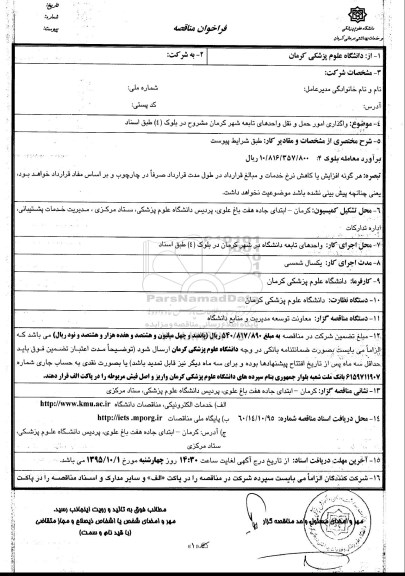 تاریخ:
شماره:
پیوست:
فراخوان مناقصه
دانشگاه علوم پزشکی
و خدمات بهداشتی درمانی کرمان
۱- از: دانشگاه علوم پزشکی کرمان
۲- به شرکت:
۳- مشخصات شرکت:
نام و نام خانوادگی مدیرعامل:
شماره ملی:
آدرس:
کد پستی:
۴- موضوع: واگذاری امور حمل و نقل واحدهای تابعه شهر کرمان مشروح در بلوک (٤) طبق اسناد
۵- شرح مختصری از مشخصات و مقادیر کار: طبق شرایط پیوست
برآورد معامله بلوک ۴: ۱۰/۸۱۶/۳۵۷/۸۰۰ ریال
تبصره: هر گونه افزایش یا کاهش نرخ خدمات و مبالغ قرارداد در طول مدت قرارداد صرفاً در چارچوب و بر اساس مفاد قرارداد خواهد بود،
یعنی چنانچه پیش بینی نشده باشد موضوعیت نخواهد داشت.
۶- محل تشکیل کمیسیون: کرمان – ابتدای جاده هفت باغ علوی، پردیس دانشگاه علوم پزشکی، ستاد مرکزی - مدیریت خدمات پشتیبانی،
اداره تدارکات
۷- محل اجرای کار: واحدهای تابعه دانشگاه در شهر کرمان در بلوک (٤) طبق اسناد
۸- مدت اجرای کار: یکسال شمسی
۹- کارفرما: دانشگاه علوم پزشکی کرمان
۱۰- دستگاه نظارت: دانشگاه علوم پزشکی کرمان
۱۱- دستگاه مناقصه گزار: معاونت توسعه مدیریت و منابع دانشگاه
۱۲- مبلغ تضمین شرکت در مناقصه به مبلغ ۵۴۰/۸۱۷/۸۹۰ ریال (پانصد و چهل میلیون و هشتصد و هفده هزار و هشتصد و نود ریال) می باشد که
الزاماً می بایست بصورت ضمانتنامه بانکی در وجه دانشگاه علوم پزشکی کرمان ارسال شود (توضیحاً مدت اعتبار تضمین فوق باید
حداقل سه ماه پس از تاریخ افتتاح پیشنهادها بوده و برای سه ماه دیگر نیز قابل تمدید باشد) یا بصورت نقدی به حساب جاری شماره
۶۱۵۹۷۱۱۹۰۷ بانک ملت شعبه بلوار جمهوری بنام سپرده های دانشگاه علوم پزشکی کرمان واریز و اصل فیش مربوطه را در پاکت الف قرار دهند.
۱۳- نشانی مناقصه گزار: کرمان – ابتدای جاده هفت باغ علوی، پردیس دانشگاه علوم پزشکی، ستاد مرکزی
۱۴- محل دریافت اسناد مناقصه شماره: ۶۰/۱۴/۱۰/۹۵
الف) خدمات الکترونیکی، مناقصات دانشگاه http://www.kmu.ac.ir
ب) پایگاه ملی مناقصات http://iets.mporg.ir
ج) آدرس: کرمان – ابتدای جاده هفت باغ علوی، پردیس دانشگاه علوم پزشکی،
ستاد مرکزی
۱۵- آخرین مهلت دریافت اسناد: از تاریخ درج آگهی لغایت ساعت ۱۴:۳۰ روز چهارشنبه مورخ ۱۳۹۵/۱۰/۱ می باشد.
۱۶- شرکت کنندگان الزاماً می بایست سپرده شرکت در مناقصه را در پاکت «الف» و سایر مدارک و اسناد مناقصه را در پاکت
مطالب فوق به تائید و رویت اینجانب رسید.
مهر و امضای شخص یا اشخاص ذیصلاح و مجاز متقاضی
(با قید نام و سمت)
مهر و امضای مسئول واحد مناقصه گزار
ParsNamadData